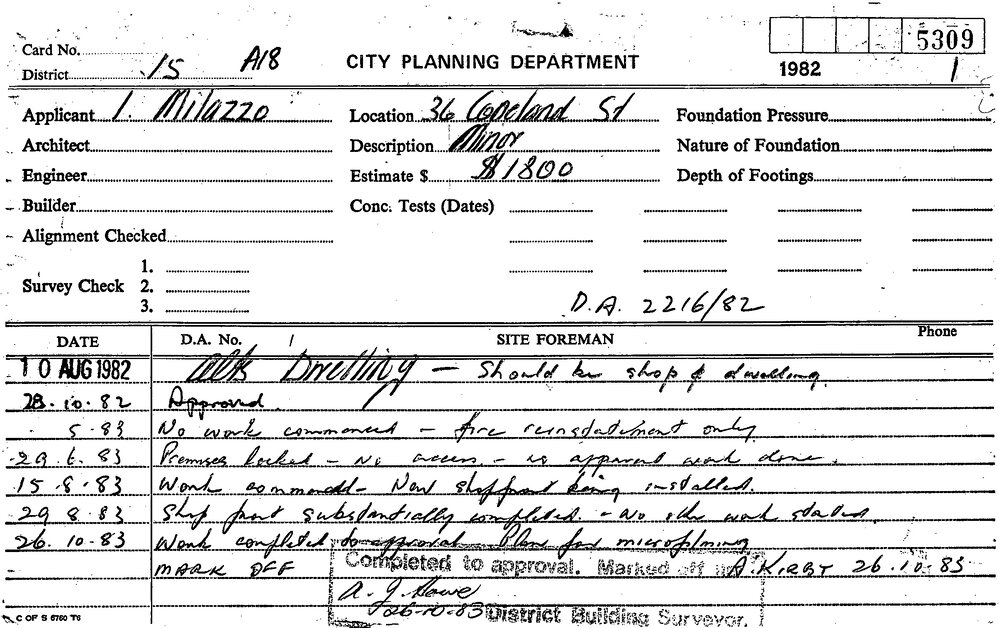 5309
Card No.
District 15 A18 CITY PLANNING DEPARTMENT 1982 1
Applicant I. Milazzo Location 36 Copeland St Foundation Pressure
Architect Description Minor Nature of Foundation
Engineer Estimate $ $1800 Depth of Footings
Builder Conc. Tests (Dates)
Alignment Checked
1.
Survey Check 2.
3. D.A. 2216/82
DATE D.A. No. SITE FOREMAN Phone
10 AUG 1982 Alts Dwelling - Should be shop & dwelling.
28.10.82 Approved.
5.83 No work commenced - fire reinstatement only
29.6.83 Premises locked - No access - no apparent work done.
15.8.83 Work commenced - New shopfront being installed.
29 8.83 Shop front substantially completed - No other work started.
26.10.83 Work completed to approval Plans for microfilming
MARK OFF A. KIRBY 26.10.83
Completed to approval. Marked off
26-10-83 District Building Surveyor.
C OF S 6760 T6